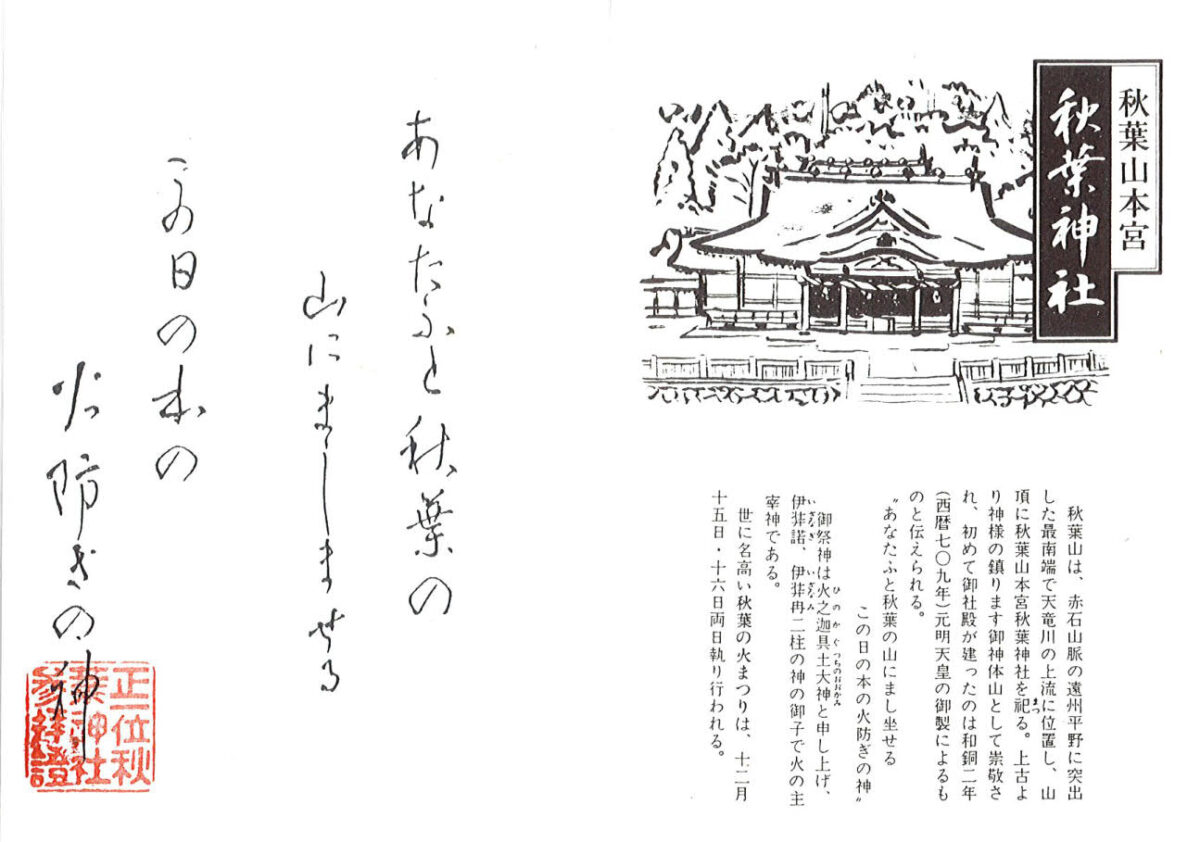 秋葉山本宮
秋葉神社
秋葉山は、赤石山脈の遠州平野に突出
した最南端で天竜川の上流に位置し、山
頂に秋葉山本宮秋葉神社を祀る。上古よ
り神様の鎮ります御神体山として崇敬さ
れ、初めて御社殿が建ったのは和銅二年
(西暦七〇九年)元明天皇の御製によるも
のと伝えられる。
〝あなたふと秋葉の山にまし坐せる
この日の本の火防ぎの神〟
御祭神は火之迦具土大神と申し上げ、
伊弉諾、伊弉冉二柱の神の御子で火の主
宰神である。
世に名高い秋葉の火まつりは、十二月
十五日・十六日両日執り行われる。
まつ
ひのかぐつちのおおかみ
いざなぎ
いざなみ
あなたふと秋葉の
山にましませる
この日の本の
火防ぎの神
正一位秋
葉神社
参拝證